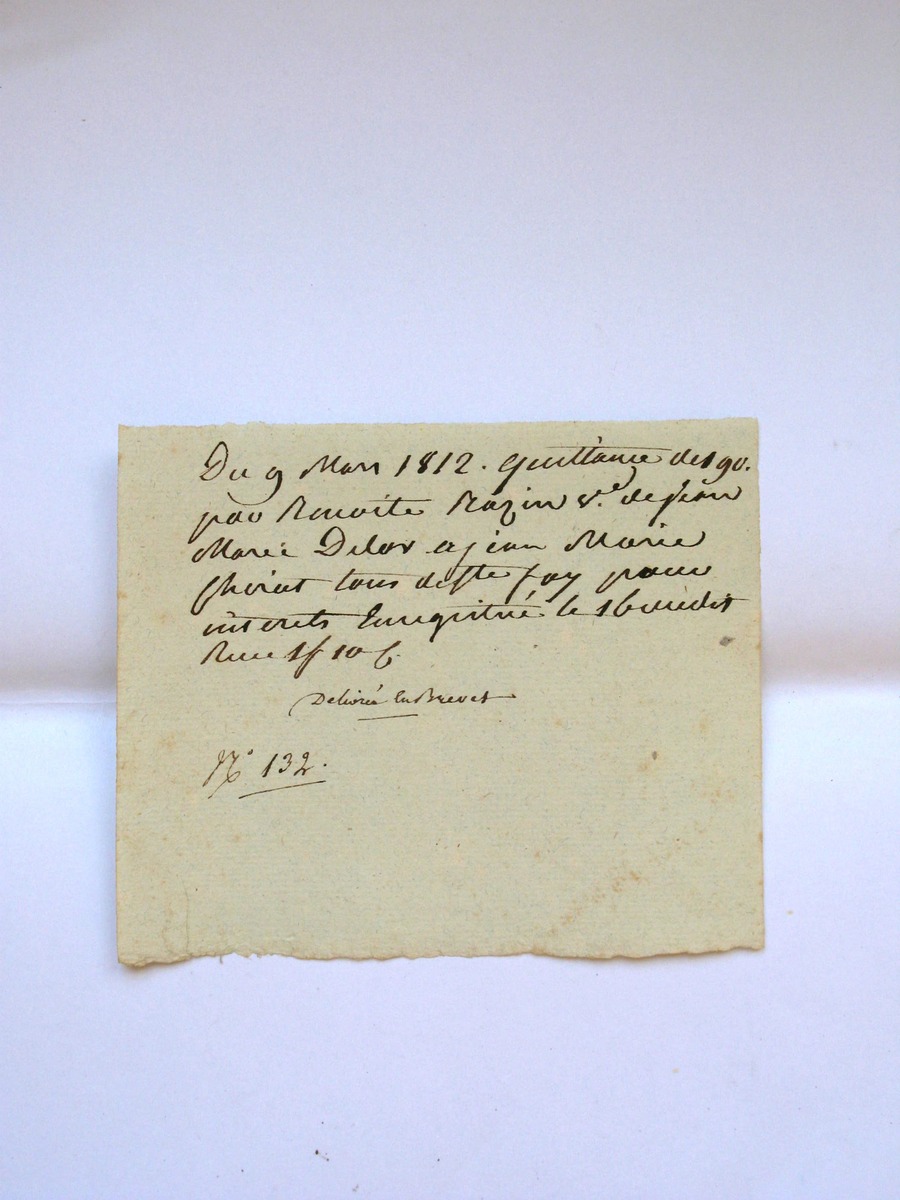 Du 9 Mars 1812. quittance de 190.
par Benoite Razin v.e de jean
Marie Delor a jean Marie
Chirat tous de Ste foy pour
interets Enregistré le 16 audit
Reçu 1f 10 c.
Delivrée En Brevet
N.o 132.